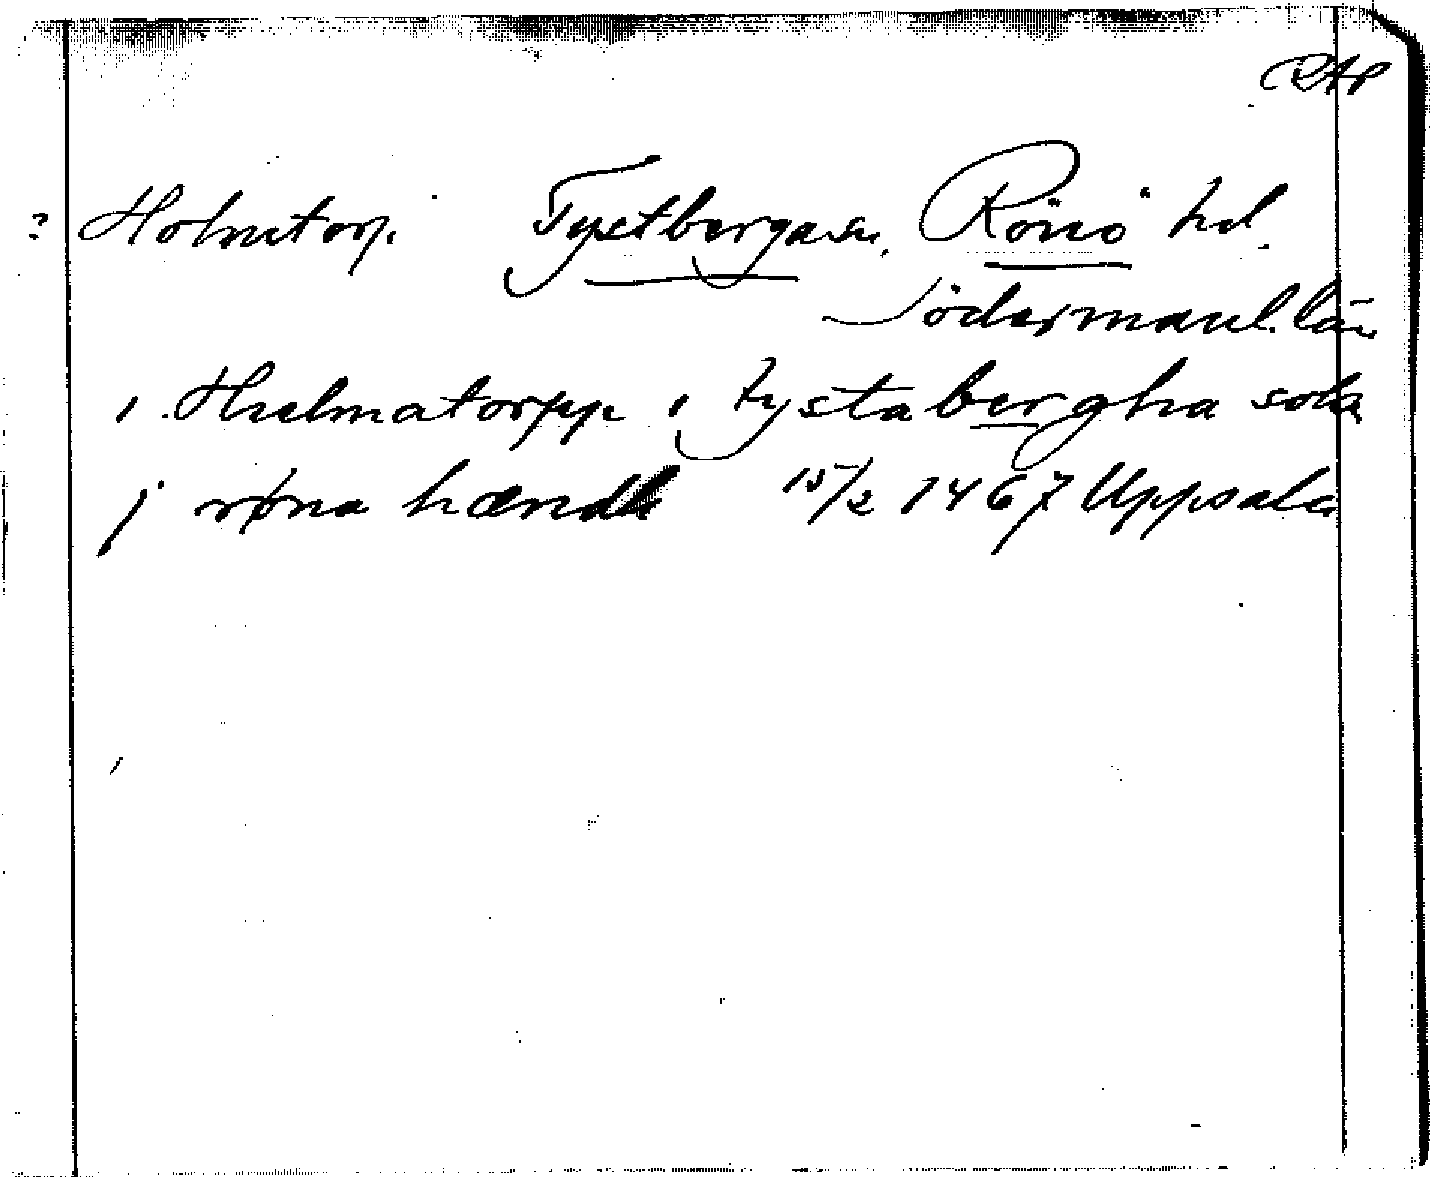 RAP
? Holmtorp. Tystberga sn. Rönö hd.
Södermanl. län
i Hulmatorpp i tystabergha sokn
j røna hændh 15/2 1467 Uppsala